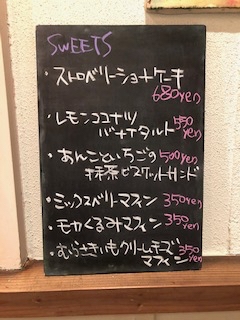 SWEETS
・ストロベリーショートケーキ
680yen
・レモンココナツ 550
バナナタルト yen
・あんこといちごの 500yen
抹茶ビスケットサンド
・ミックスベリーマフィン 350yen
・モカくるみマフィン 350yen
・むらさきいもクリームチーズ 350
マフィン yen